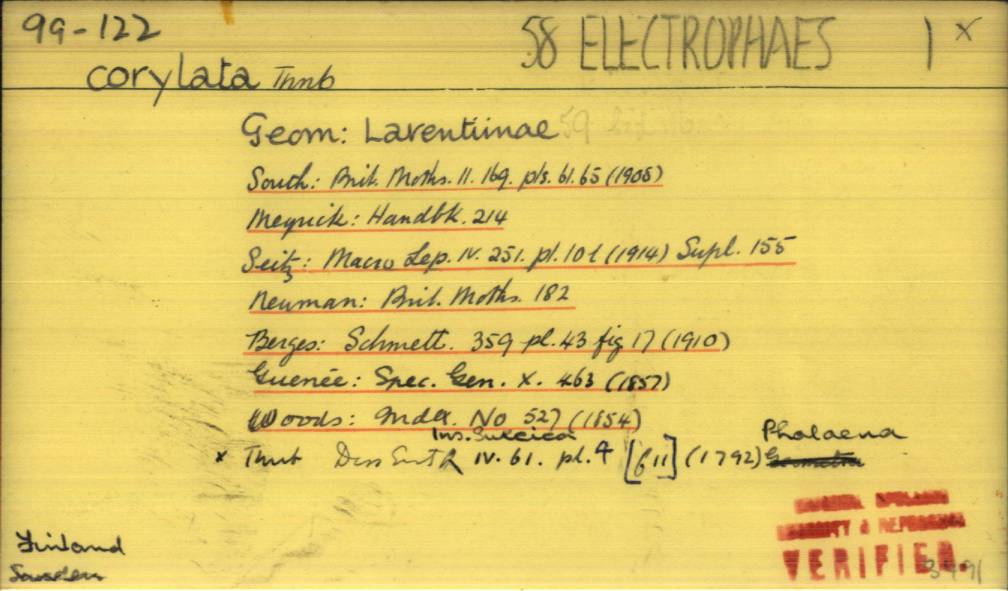 99-122
58 ELECTROPHAES 1 x
corylata Thnb
Geom: Larentiinae
South: Brit. Moths. II. 169. pls. 61. 65 (1908)
Meyrick: Handbk. 214
Seitz: Macro Lep. IV. 251. pl. 10 l (1914) Supl. 155
Newman: Brit. Moths. 182
Berges: Schmett. 359 pl. 43 fig 17 (1910)
Guenée: Spec. Gen. X. 463 (1857)
Woods: Index. No 527 (1854)
Ins. Suecica
x Thnb Diss Ent IV. 61. pl. 4 [f 11] (1792) Phalaena
Finland
Sweden
VERIFIED.